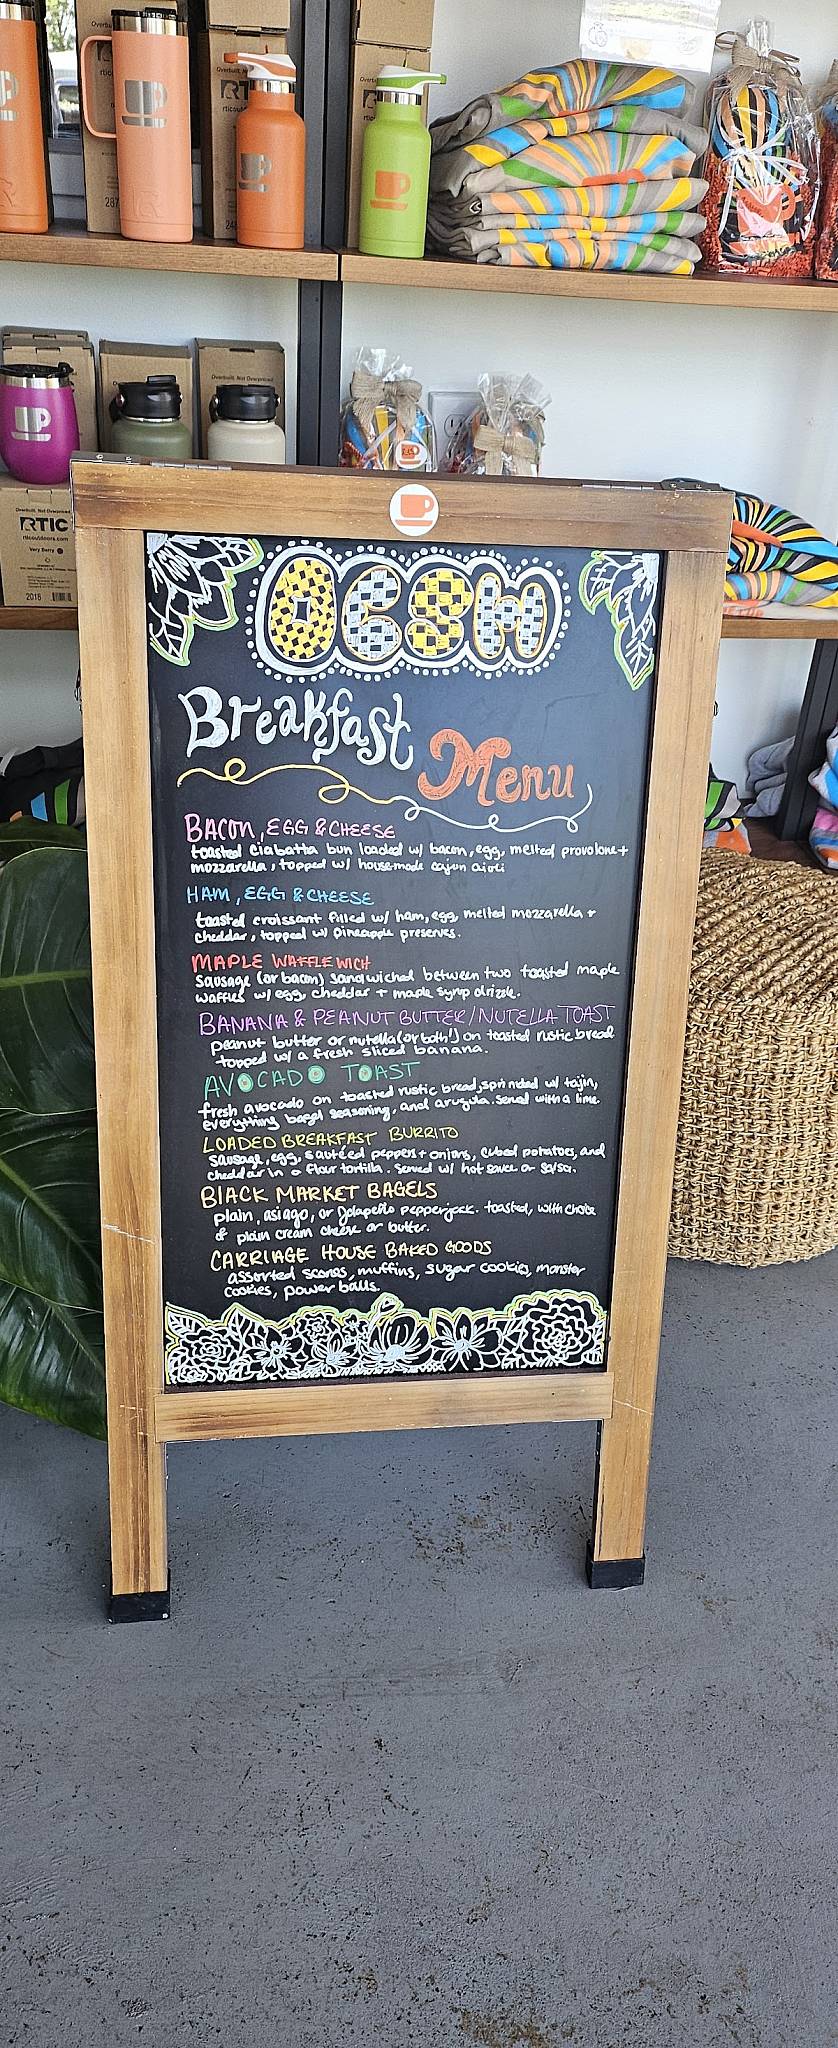 Overbuilt. Not Overpriced
RTIC
rticoutdoors.com
Very Berry
2018
OCSM
Breakfast
Menu
BACON, EGG & CHEESE
toasted ciabatta bun loaded w/ bacon, egg, melted provolone +
mozzarella, topped w/ housemade cajun aioli
HAM, EGG & CHEESE
toasted croissant filled w/ ham, egg, melted mozzarella +
cheddar, topped w/ pineapple preserves.
MAPLE WAFFLEWICH
Sausage (or bacon) sandwiched between two toasted maple
waffles w/ egg, cheddar + maple syrup drizzle.
BANANA & PEANUT BUTTER/NUTELLA TOAST
peanut butter or nutella (or both!) on toasted rustic bread
topped w/ a fresh sliced banana.
AVOCADO TOAST
fresh avocado on toasted rustic bread, sprinkled w/ tajin,
everything bagel seasoning, and arugula. Served with a lime.
LOADED BREAKFAST BURRITO
sausage, egg, sautéed peppers + onions, cubed potatoes, and
cheddar in a flour tortilla. Served w/ hot sauce or salsa.
BLACK MARKET BAGELS
plain, asiago, or Jalapeño pepperjack. toasted, with choice
of plain cream cheese or butter.
CARRIAGE HOUSE BAKED GOODS
assorted scones, muffins, sugar cookies, monster
cookies, power balls.